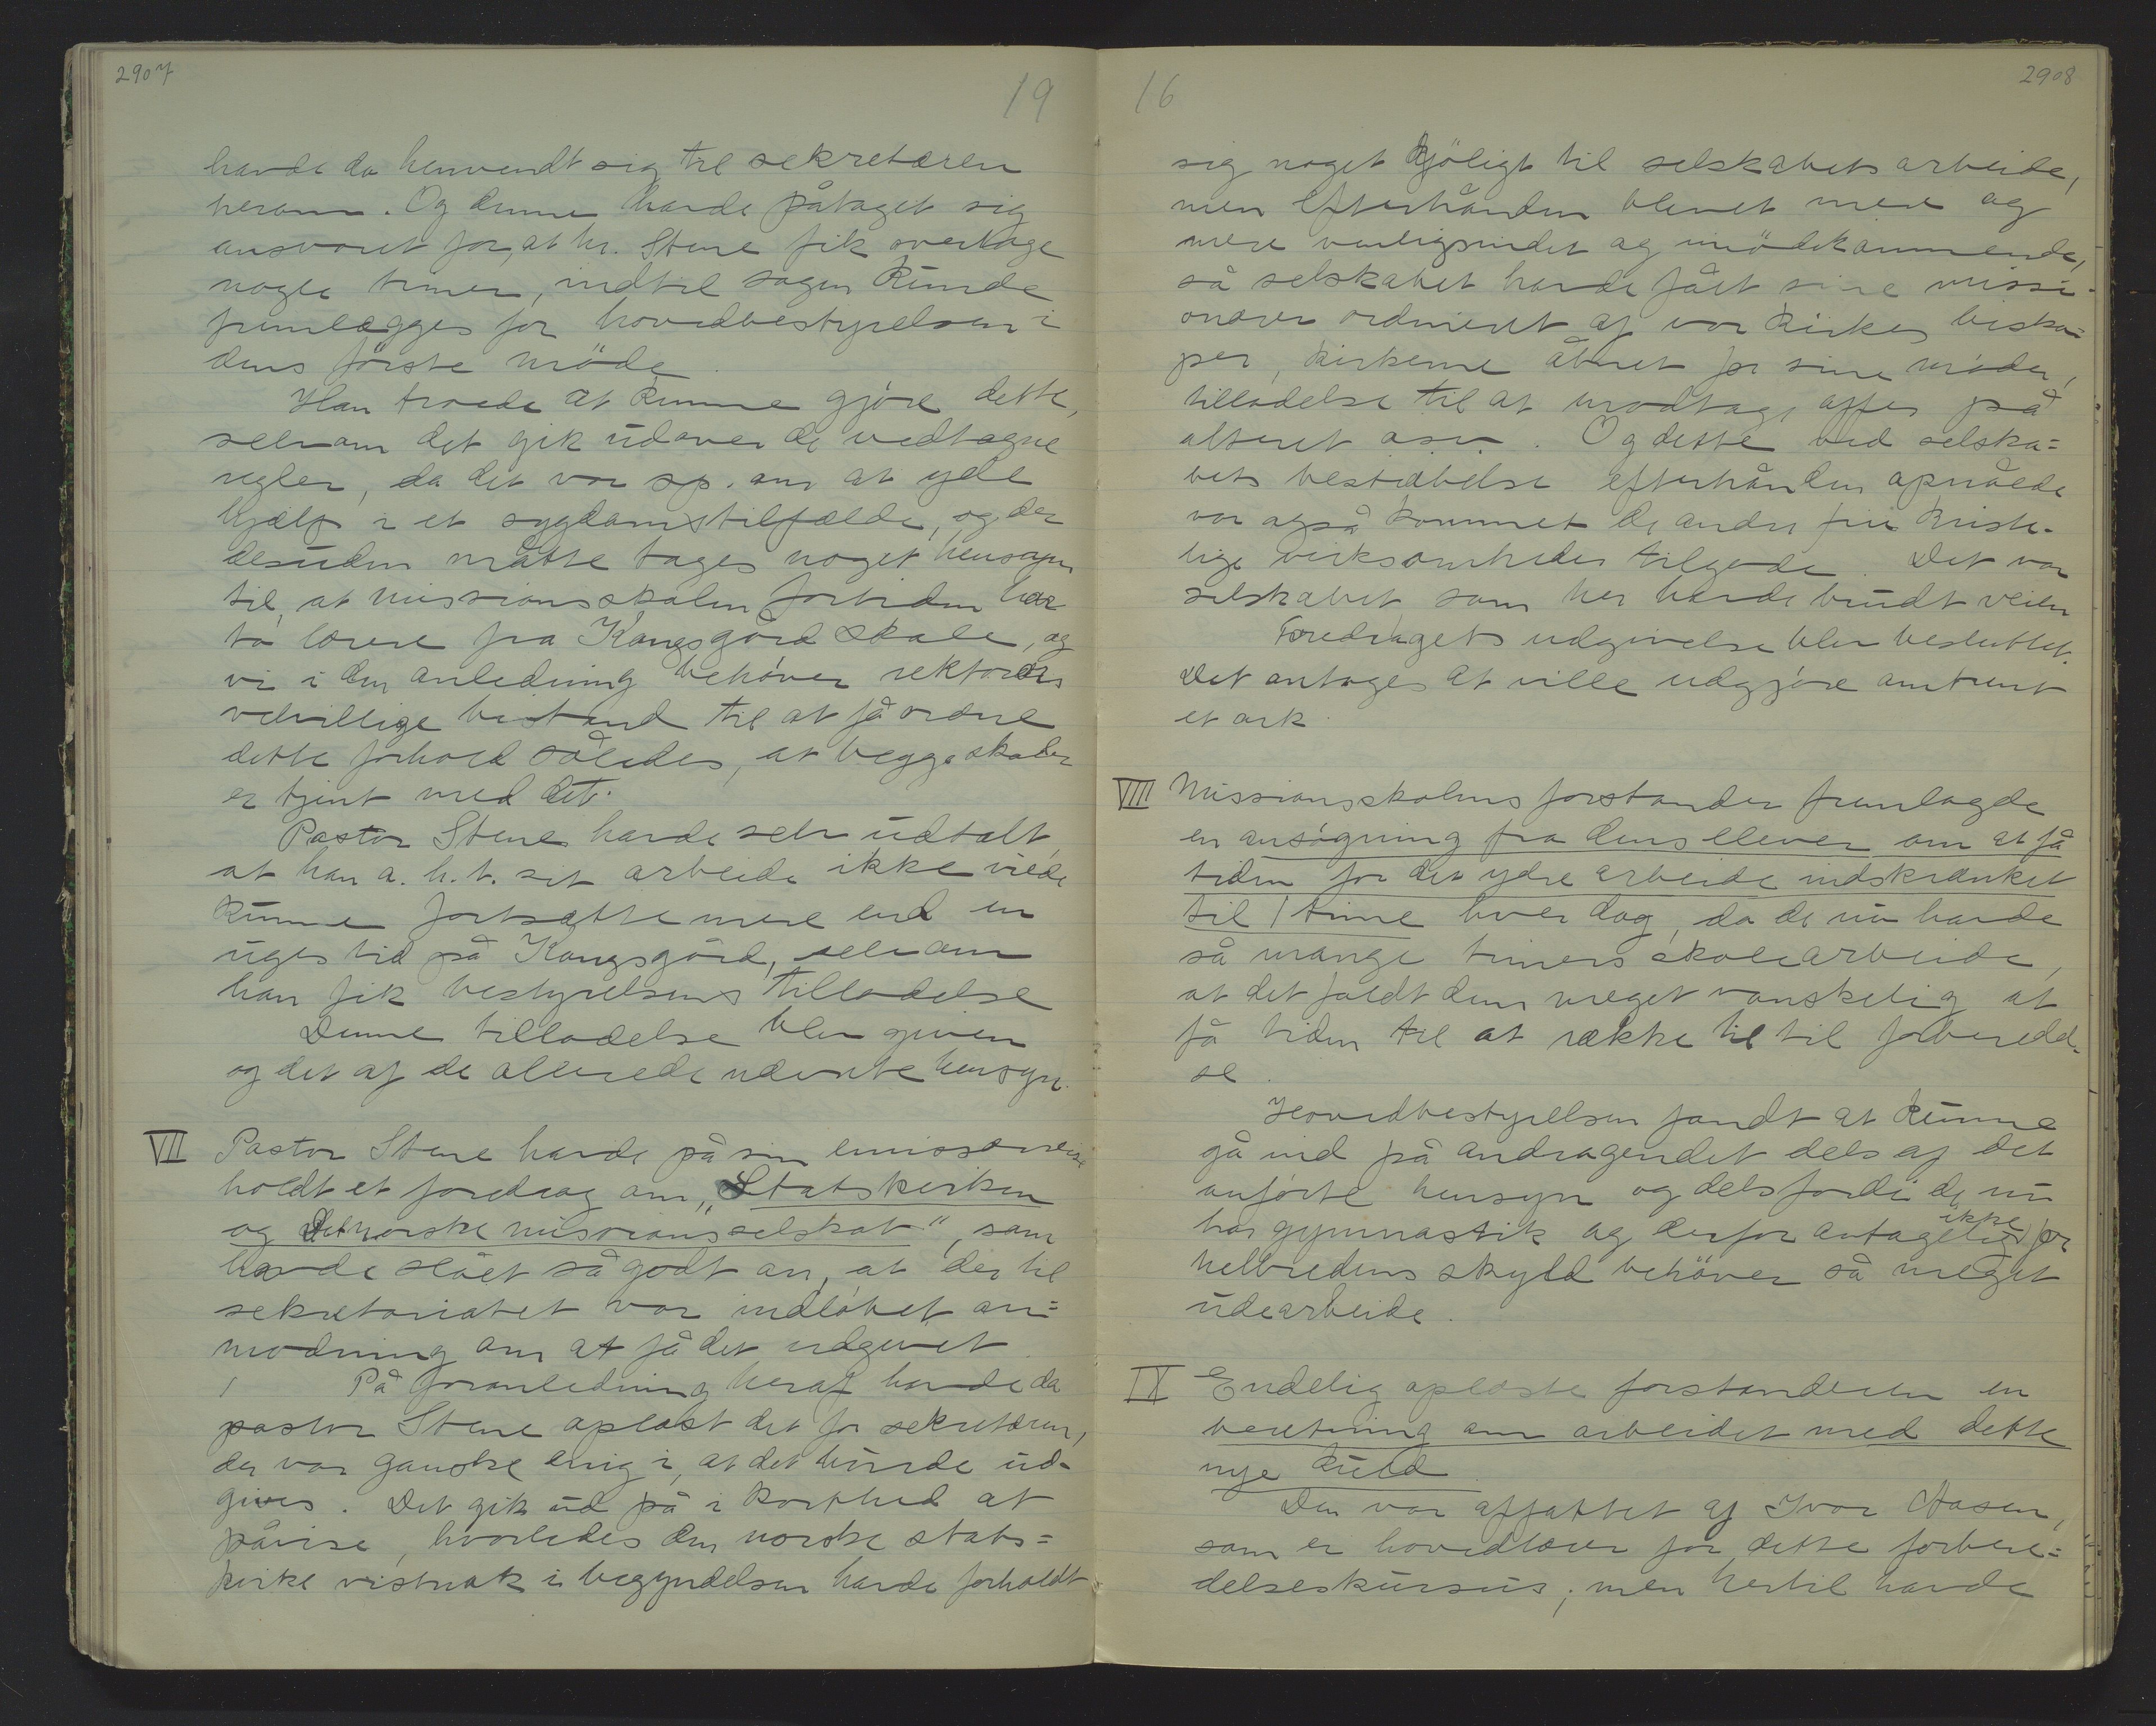 2907
19
havde da henvendt sig til sekretæren
herom. Og denne havde påtaget sig
ansvaret for, at hr. Stene fik overtage
nogle timer, indtil sagen kunde
fremlægges for hovedbestyrelsen i
dens første møde.
Han troede at kunne gjöre dette,
selvom det gik udover de vedtagne
regler, da det var sp. om at yde
hjælp i et sygdomstilfælde, og der
desuden måtte tages noget hensyn
til, at missionsskolen fortiden har
to lærere fra Kongsgård skole, og
vi i den anledning behöver rektorens
velvillige bistand til at få ordne
dette forhold således, at begge skoler
er tjent med det.
Pastor Stene havde selv udtalt,
at han a. h. t. sit arbeide ikke vilde
kunne fortsætte mere end en
uges tid på Kongsgård, selvom
han fik bestyrelsens tilladelse
Denne tilladelse blev given
og det af de allerede nævnte hensyn.
VII Pastor Stene havde på sin emissærreise
holdt et foredrag om „Statskirken
og Det norske missionsselskab", som
havde slået så godt an, at der til
sekretariatet var indløbet an=
modning om at få det udgivet.
På foranledning heraf havde da
pastor Stene oplæst det for sekretæren,
der var ganske enig i, at det burde ud-
gives. Det gik ud på i korthed at
påvise, hvorledes den norske stats=
kirke vistnok i begyndelsen havde forholdt
16
2908
sig noget kjöligt til selskabets arbeide,
men efterhånden blevet mere og
mere venligsindet og imödekommende,
så selskabet havde fået sine missi-
onærer ordineret af vor kirkes bisko=
per, kirkerne åbnet for sine møder,
tilladelse til at modtage offer på
alteret osv. Og dette ved selska=
bets bestræbelse efterhånden opnåede
var også kommet de andre frie kriste-
lige virksomheder tilgode. Det var
selskabet som her havde brudt veien
Foredragets udgivelse blev besluttet.
Det antages at ville udgjöre omtrent
et ark.
VIII Missionsskolens forstander fremlagde
en ansögning fra dens elever om at få
tiden for det ydre arbeide indskrænket
til 1 time hver dag, da de nu havde
så mange timers skolearbeide,
at det faldt dem meget vanskelig at
få tiden til at række til til forberedel-
se.
Hovedbestyrelsen fandt at kunne
gå ind på andragendet dels af det
anførte hensyn og dels fordi de nu
har gymnastik og derfor antagelig ikke for
helbredens skyld behöver så meget
udearbeide.
IX Endelig oplæste forstanderen en
beretning om arbeidet med dette
nye kuld.
Den var affattet af Ivar Aasen,
som er hovedlærer for dette forbere=
delseskursus; men hertil havde